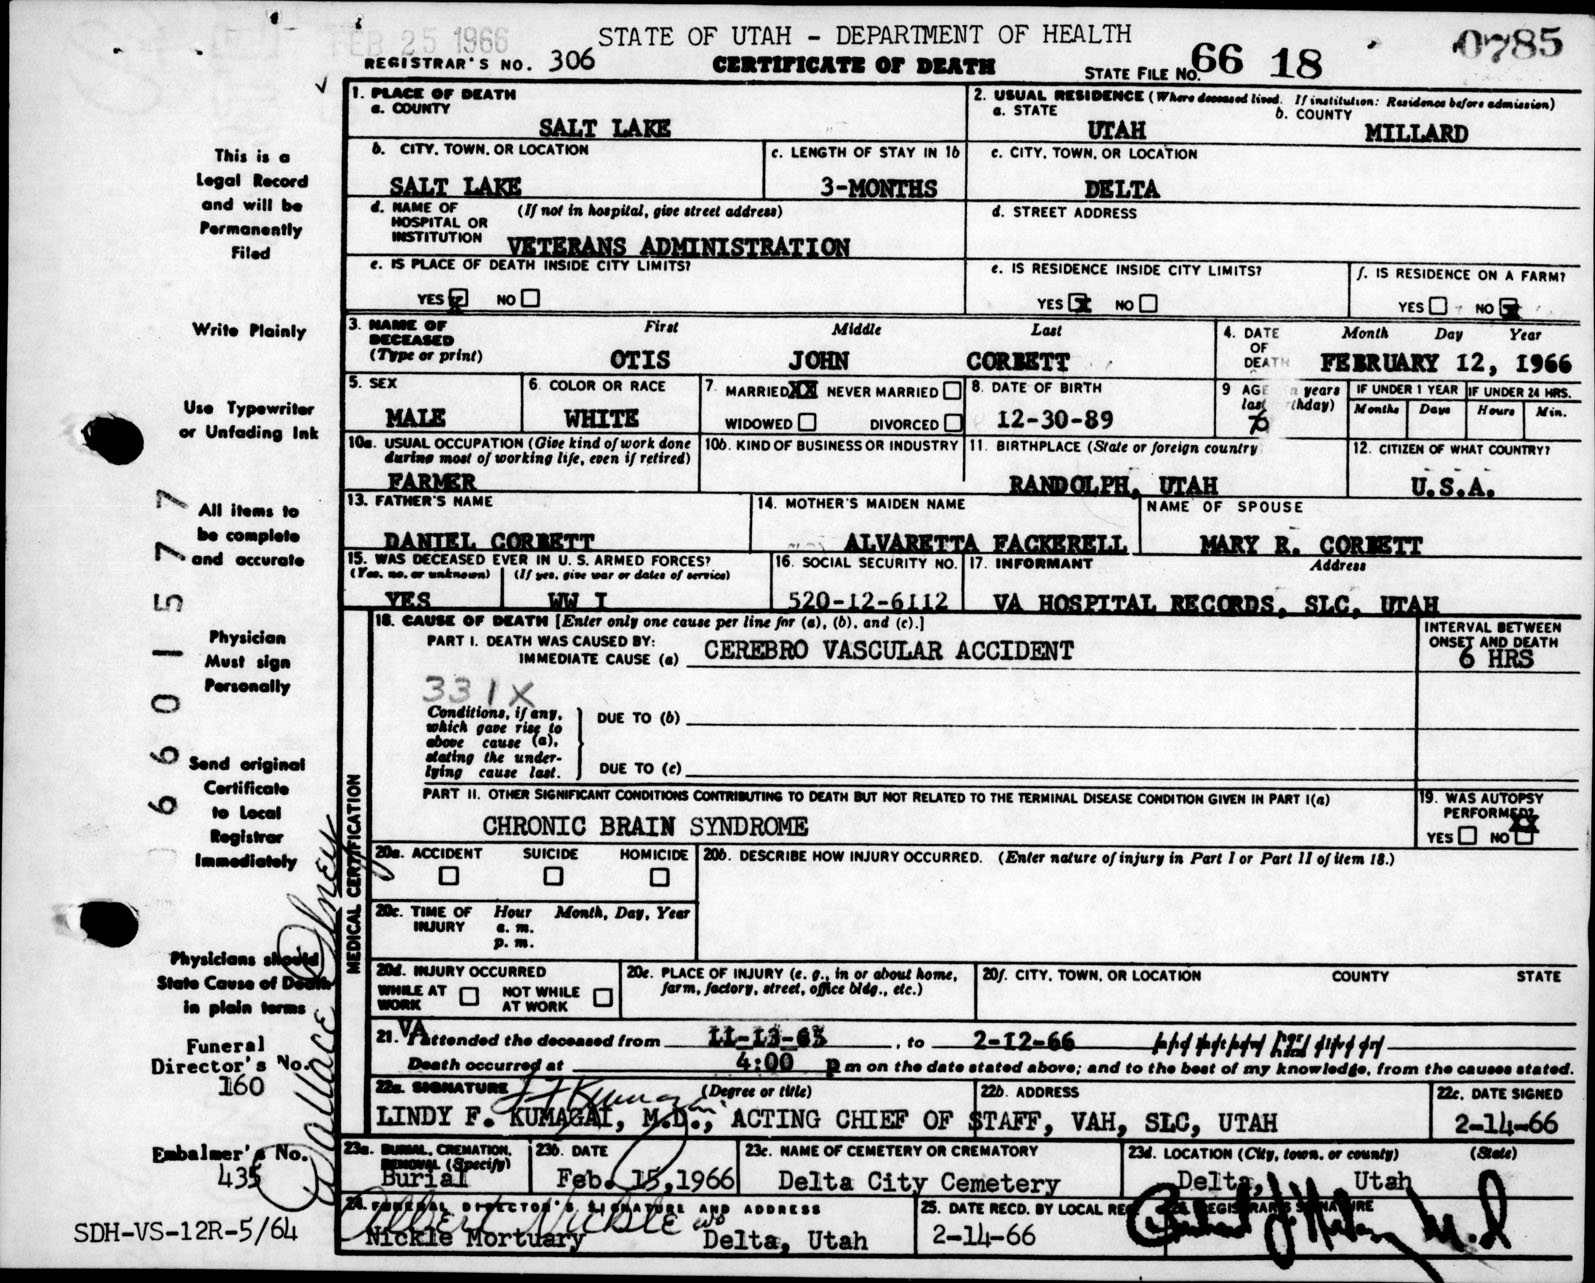 FEB 25 1966
STATE OF UTAH - DEPARTMENT OF HEALTH
0785
REGISTRAR'S NO. 306
CERTIFICATE OF DEATH
STATE FILE NO. 66 18
1. PLACE OF DEATH
a. COUNTY
SALT LAKE
2. USUAL RESIDENCE (Where deceased lived. If institution: Residence before admission)
a. STATE
UTAH
b. COUNTY
MILLARD
b. CITY, TOWN, OR LOCATION
SALT LAKE
c. LENGTH OF STAY IN 1b
3-MONTHS
c. CITY, TOWN, OR LOCATION
DELTA
d. NAME OF HOSPITAL OR INSTITUTION
(If not in hospital, give street address)
VETERANS ADMINISTRATION
d. STREET ADDRESS
e. IS PLACE OF DEATH INSIDE CITY LIMITS?
YES X NO
e. IS RESIDENCE INSIDE CITY LIMITS?
YES X NO
f. IS RESIDENCE ON A FARM?
YES NO X
3. NAME OF DECEASED (Type or print)
First Middle Last
OTIS JOHN CORBETT
4. DATE OF DEATH
Month Day Year
FEBRUARY 12, 1966
5. SEX
MALE
6. COLOR OR RACE
WHITE
7. MARRIED XX NEVER MARRIED
WIDOWED DIVORCED
8. DATE OF BIRTH
12-30-89
9 AGE n years
last thday)
76
IF UNDER 1 YEAR
Months Days
IF UNDER 24 HRS.
Hours Min.
10a. USUAL OCCUPATION (Give kind of work done during most of working life, even if retired)
FARMER
10b. KIND OF BUSINESS OR INDUSTRY
11. BIRTHPLACE (State or foreign country
RANDOLPH, UTAH
12. CITIZEN OF WHAT COUNTRY?
U.S.A.
13. FATHER'S NAME
DANIEL CORBETT
14. MOTHER'S MAIDEN NAME
ALVARETTA FACKERELL
NAME OF SPOUSE
MARY R. CORBETT
15. WAS DECEASED EVER IN U. S. ARMED FORCES?
(Yes, no, or unknown) (If yes, give war or dates of service)
YES WW I
16. SOCIAL SECURITY NO.
520-12-6112
17. INFORMANT Address
VA HOSPITAL RECORDS, SLC, UTAH
MEDICAL CERTIFICATION
18. CAUSE OF DEATH [Enter only one cause per line for (a), (b), and (c).]
PART I. DEATH WAS CAUSED BY:
IMMEDIATE CAUSE (a) CEREBRO VASCULAR ACCIDENT
INTERVAL BETWEEN ONSET AND DEATH
6 HRS
331X
Conditions, if any, which gave rise to above cause (a), stating the underlying cause last.
DUE TO (b)
DUE TO (c)
PART II. OTHER SIGNIFICANT CONDITIONS CONTRIBUTING TO DEATH BUT NOT RELATED TO THE TERMINAL DISEASE CONDITION GIVEN IN PART I(a)
CHRONIC BRAIN SYNDROME
19. WAS AUTOPSY PERFORMED?
YES NO XX
20a. ACCIDENT SUICIDE HOMICIDE
20b. DESCRIBE HOW INJURY OCCURRED. (Enter nature of injury in Part I or Part II of item 18.)
20c. TIME OF INJURY
Hour Month, Day, Year
a. m.
p. m.
20d. INJURY OCCURRED
WHILE AT WORK NOT WHILE AT WORK
20e. PLACE OF INJURY (e. g., in or about home, farm, factory, street, office bldg., etc.)
20f. CITY, TOWN, OR LOCATION COUNTY STATE
21. VA attended the deceased from 11-13-65, to 2-12-66
Death occurred at 4:00 p m on the date stated above; and to the best of my knowledge, from the causes stated.
22a. SIGNATURE (Degree or title)
LINDY F. KUMAGAI, M.D., ACTING CHIEF OF STAFF, VAH, SLC, UTAH
22b. ADDRESS
22c. DATE SIGNED
2-14-66
23a. BURIAL, CREMATION, REMOVAL (Specify)
Burial
23b. DATE
Feb. 15, 1966
23c. NAME OF CEMETERY OR CREMATORY
Delta City Cemetery
23d. LOCATION (City, town, or county) (State)
Delta, Utah
24. FUNERAL DIRECTOR'S SIGNATURE AND ADDRESS
Albert Nickle
Nickle Mortuary Delta, Utah
25. DATE RECD. BY LOCAL REG
2-14-66
REGISTRAR'S SIGNATURE
M.D
This is a
Legal Record
and will be
Permanently
Filed
Write Plainly
Use Typewriter
or Unfading Ink
All items to
be complete
and accurate
Physician
Must sign
Personally
Send original
Certificate
to Local
Registrar
Immediately
Physicians should
State Cause of Death
in plain terms
Funeral
Director's No.
160
Embalmer's No.
435
66015777
Wallace Olney
SDH-VS-12R-5/64